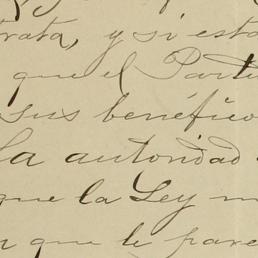 trata, y si esta
que el Parti
sus benéfico
la autoridad
que la Ley m
que le pare